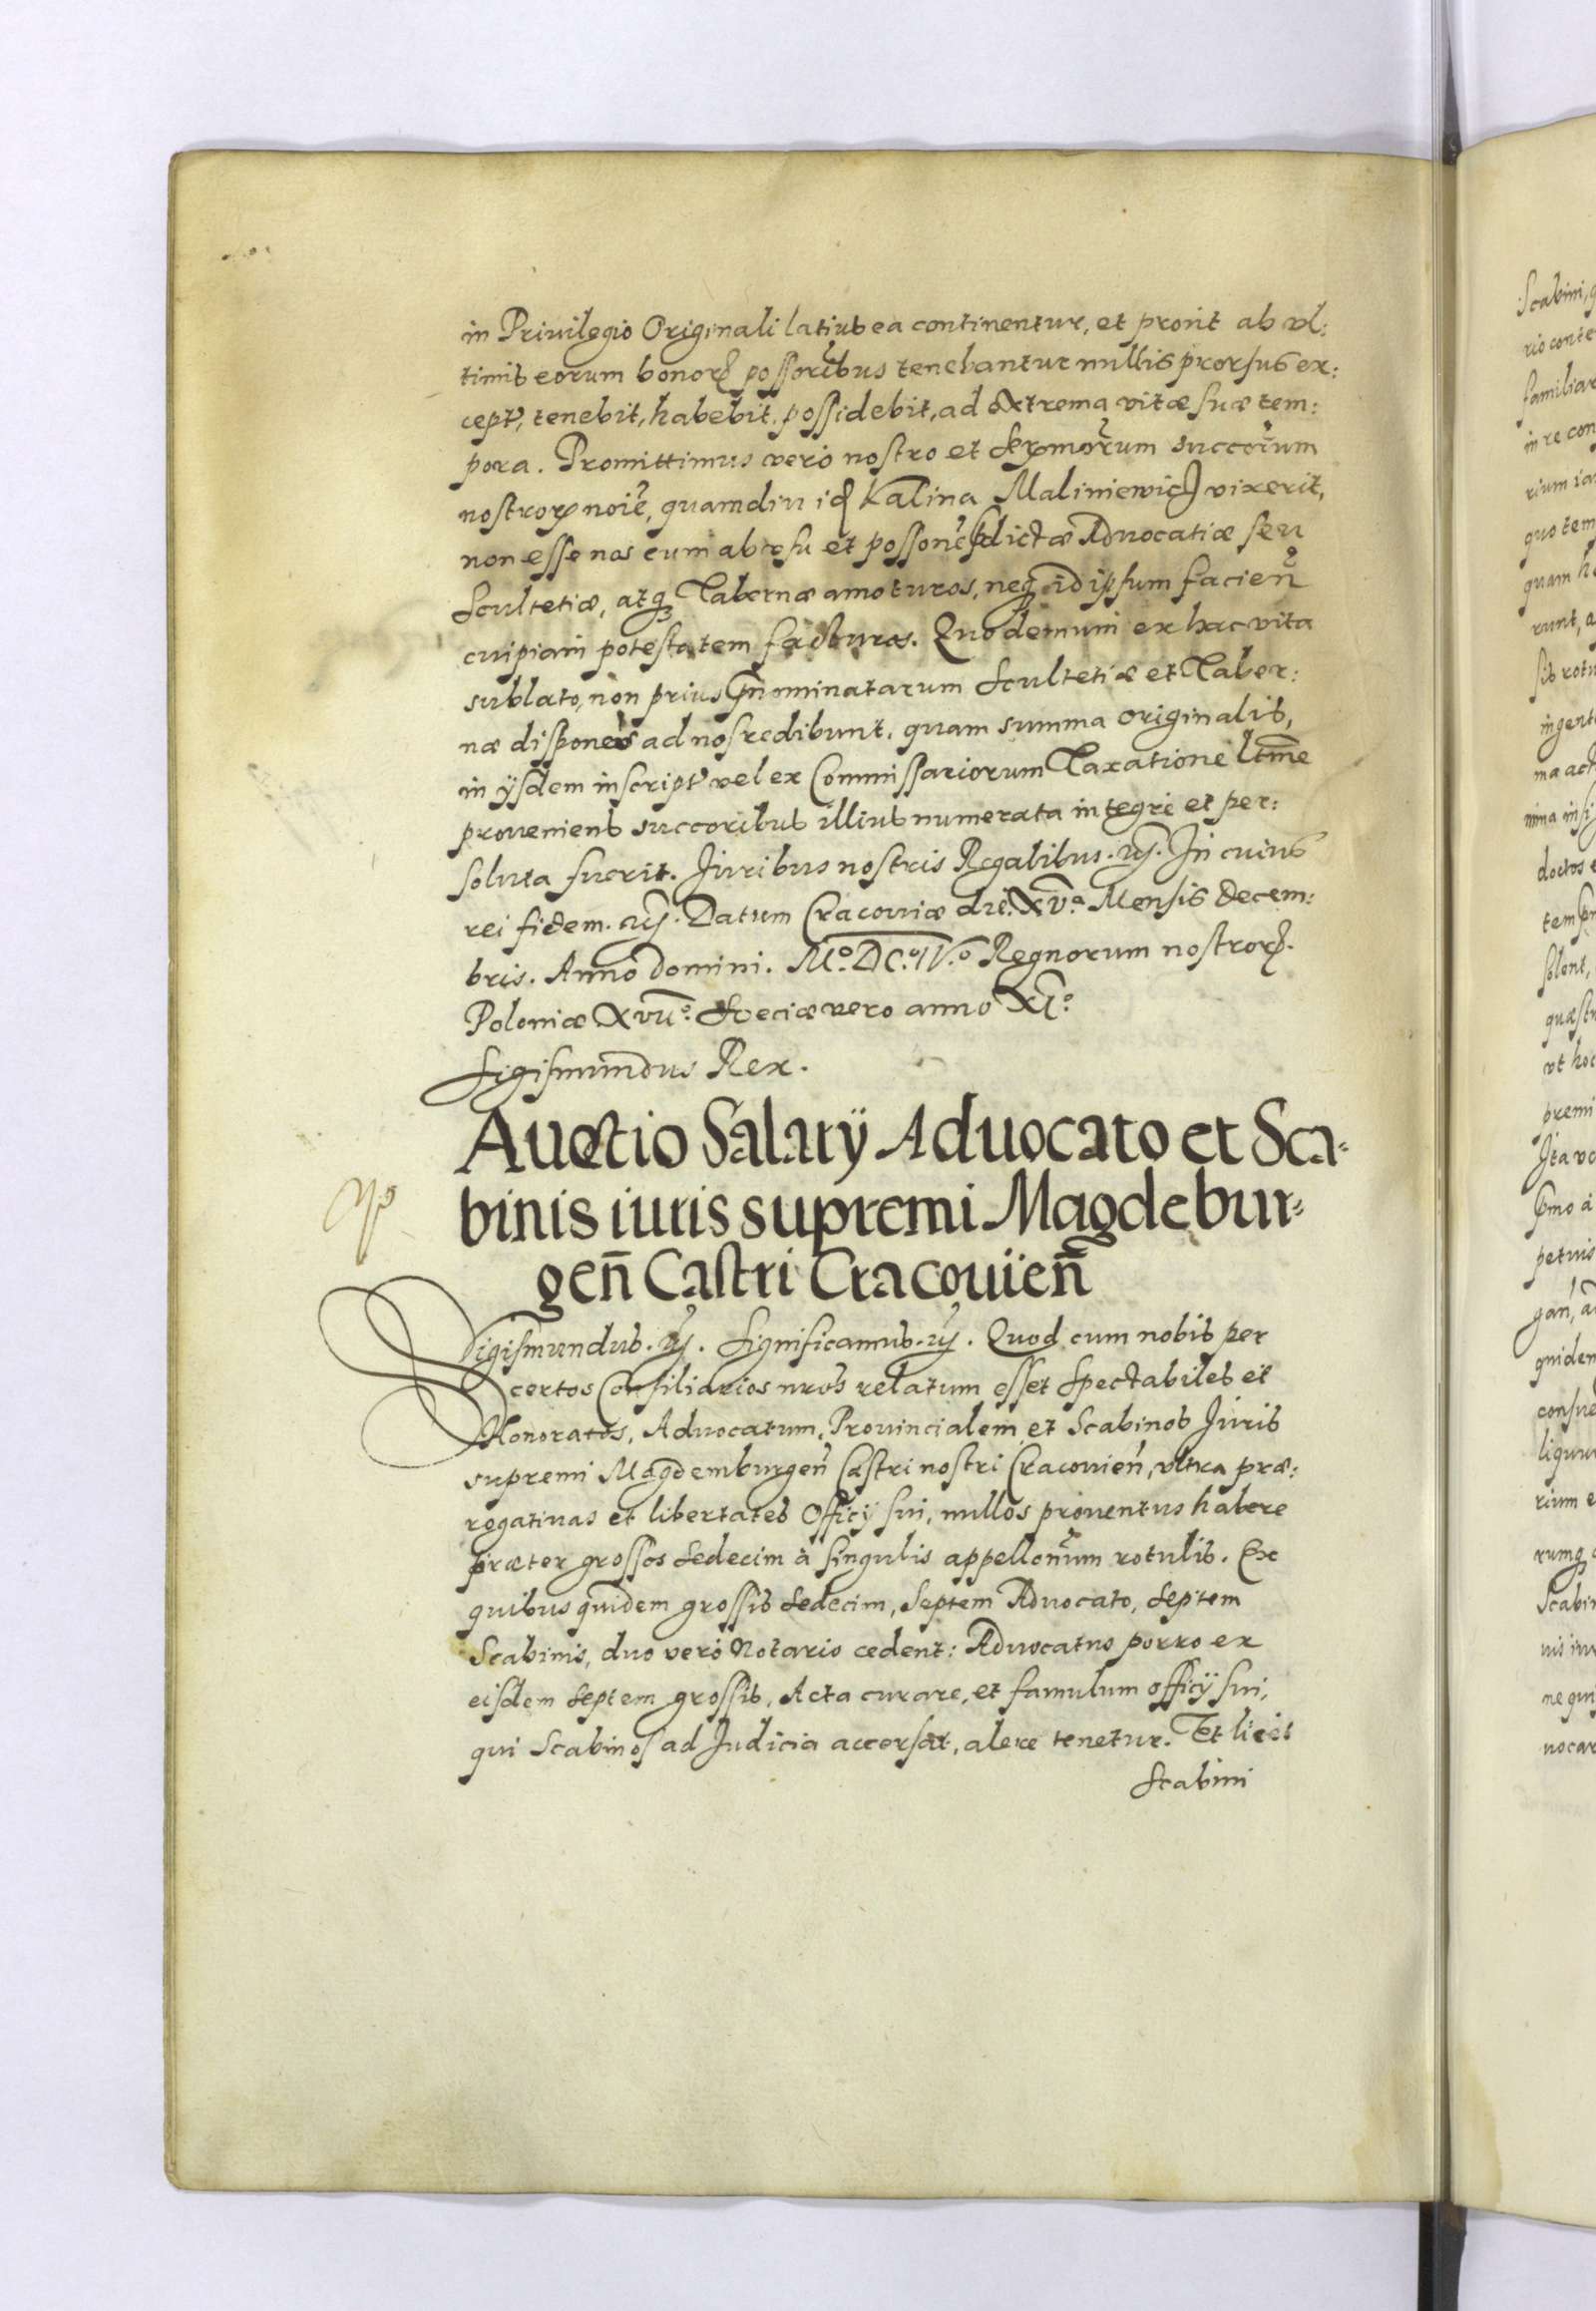 in Priuilegio Originali latius ea continentur, et prout ab vl:
timis eorum bonorꝝ possoribus tenebantur nullis prorsus ex:
cept', tenebit, habebit, possidebit, ad extrema vitæ suæ tem:
pora. Promittimus vero nostro et Serẽmorum succorum
nostrorꝝ noiẽ, quamdiu idꝫ Kalina Maliniewicz vixerit,
non esse nos eum ab vsu et possonẽ p̃dictæ Aduocatiæ seu
Scultetiæ, atqꝫ Tabernæ amoturos, neqꝫ id ipsum facien̄
cuipiam potestatem facturos. Quo demum ex hac vita
sublato, non prius p̃nominatarum Scultetiæ et Taber:
næ dispones ad nos redibunt, quam summa originalis,
in ijsdem inscript' vel ex Commissariorum Taxatione ltm̃e
proueniens succoribus illius numerata integre et per:
soluta fuerit. Juribus nostris Regalibus. ꝛc̃. In cuius
rei fidem. ꝛc̃. Datum Cracouiæ die. XVª. Mensis Decem:
bris. Anno Domini. Mº. DCº. IV.º Regnorum nostrorꝝ.
Poloniæ XVIIº. Sveciæ vero anno XIº.
Sigismundus Rex.
Auctio Salarÿ Aduocato et Sca-
binis iuris supremi Magdebur-
gen̄ Castri Cracouien̄
Sigismundus. ꝛc̃. Significamus. ꝛc̃. Quod cum nobis per
certos Consiliarios nros relatum esset Spectabiles et
Honoratos, Aduocatum, Prouincialem et Scabinos Juris
supremi Magdemburgen̄ Castri nostri Cracouien̄, vltra præ:
rogatiuas et libertates Officÿ sui, nullos prouentus habere
præter grossos sedecim à singulis appellonum rotulis. Ex
quibus quidem grossis sedecim, Septem Aduocato, septem
Scabinis, duo vero Notario cedent: Aduocatus porro ex
eisdem septem grossis, Acta curare, et famulum officÿ sui,
qui Scabinos ad Judicia accersat, alere tenetur. Et licet
Scabini